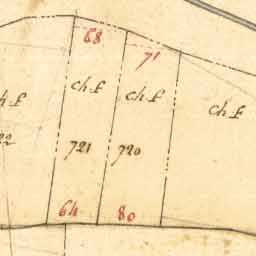 68
71
ch f
ch f
ch f
ch f
22
721
720
64
80